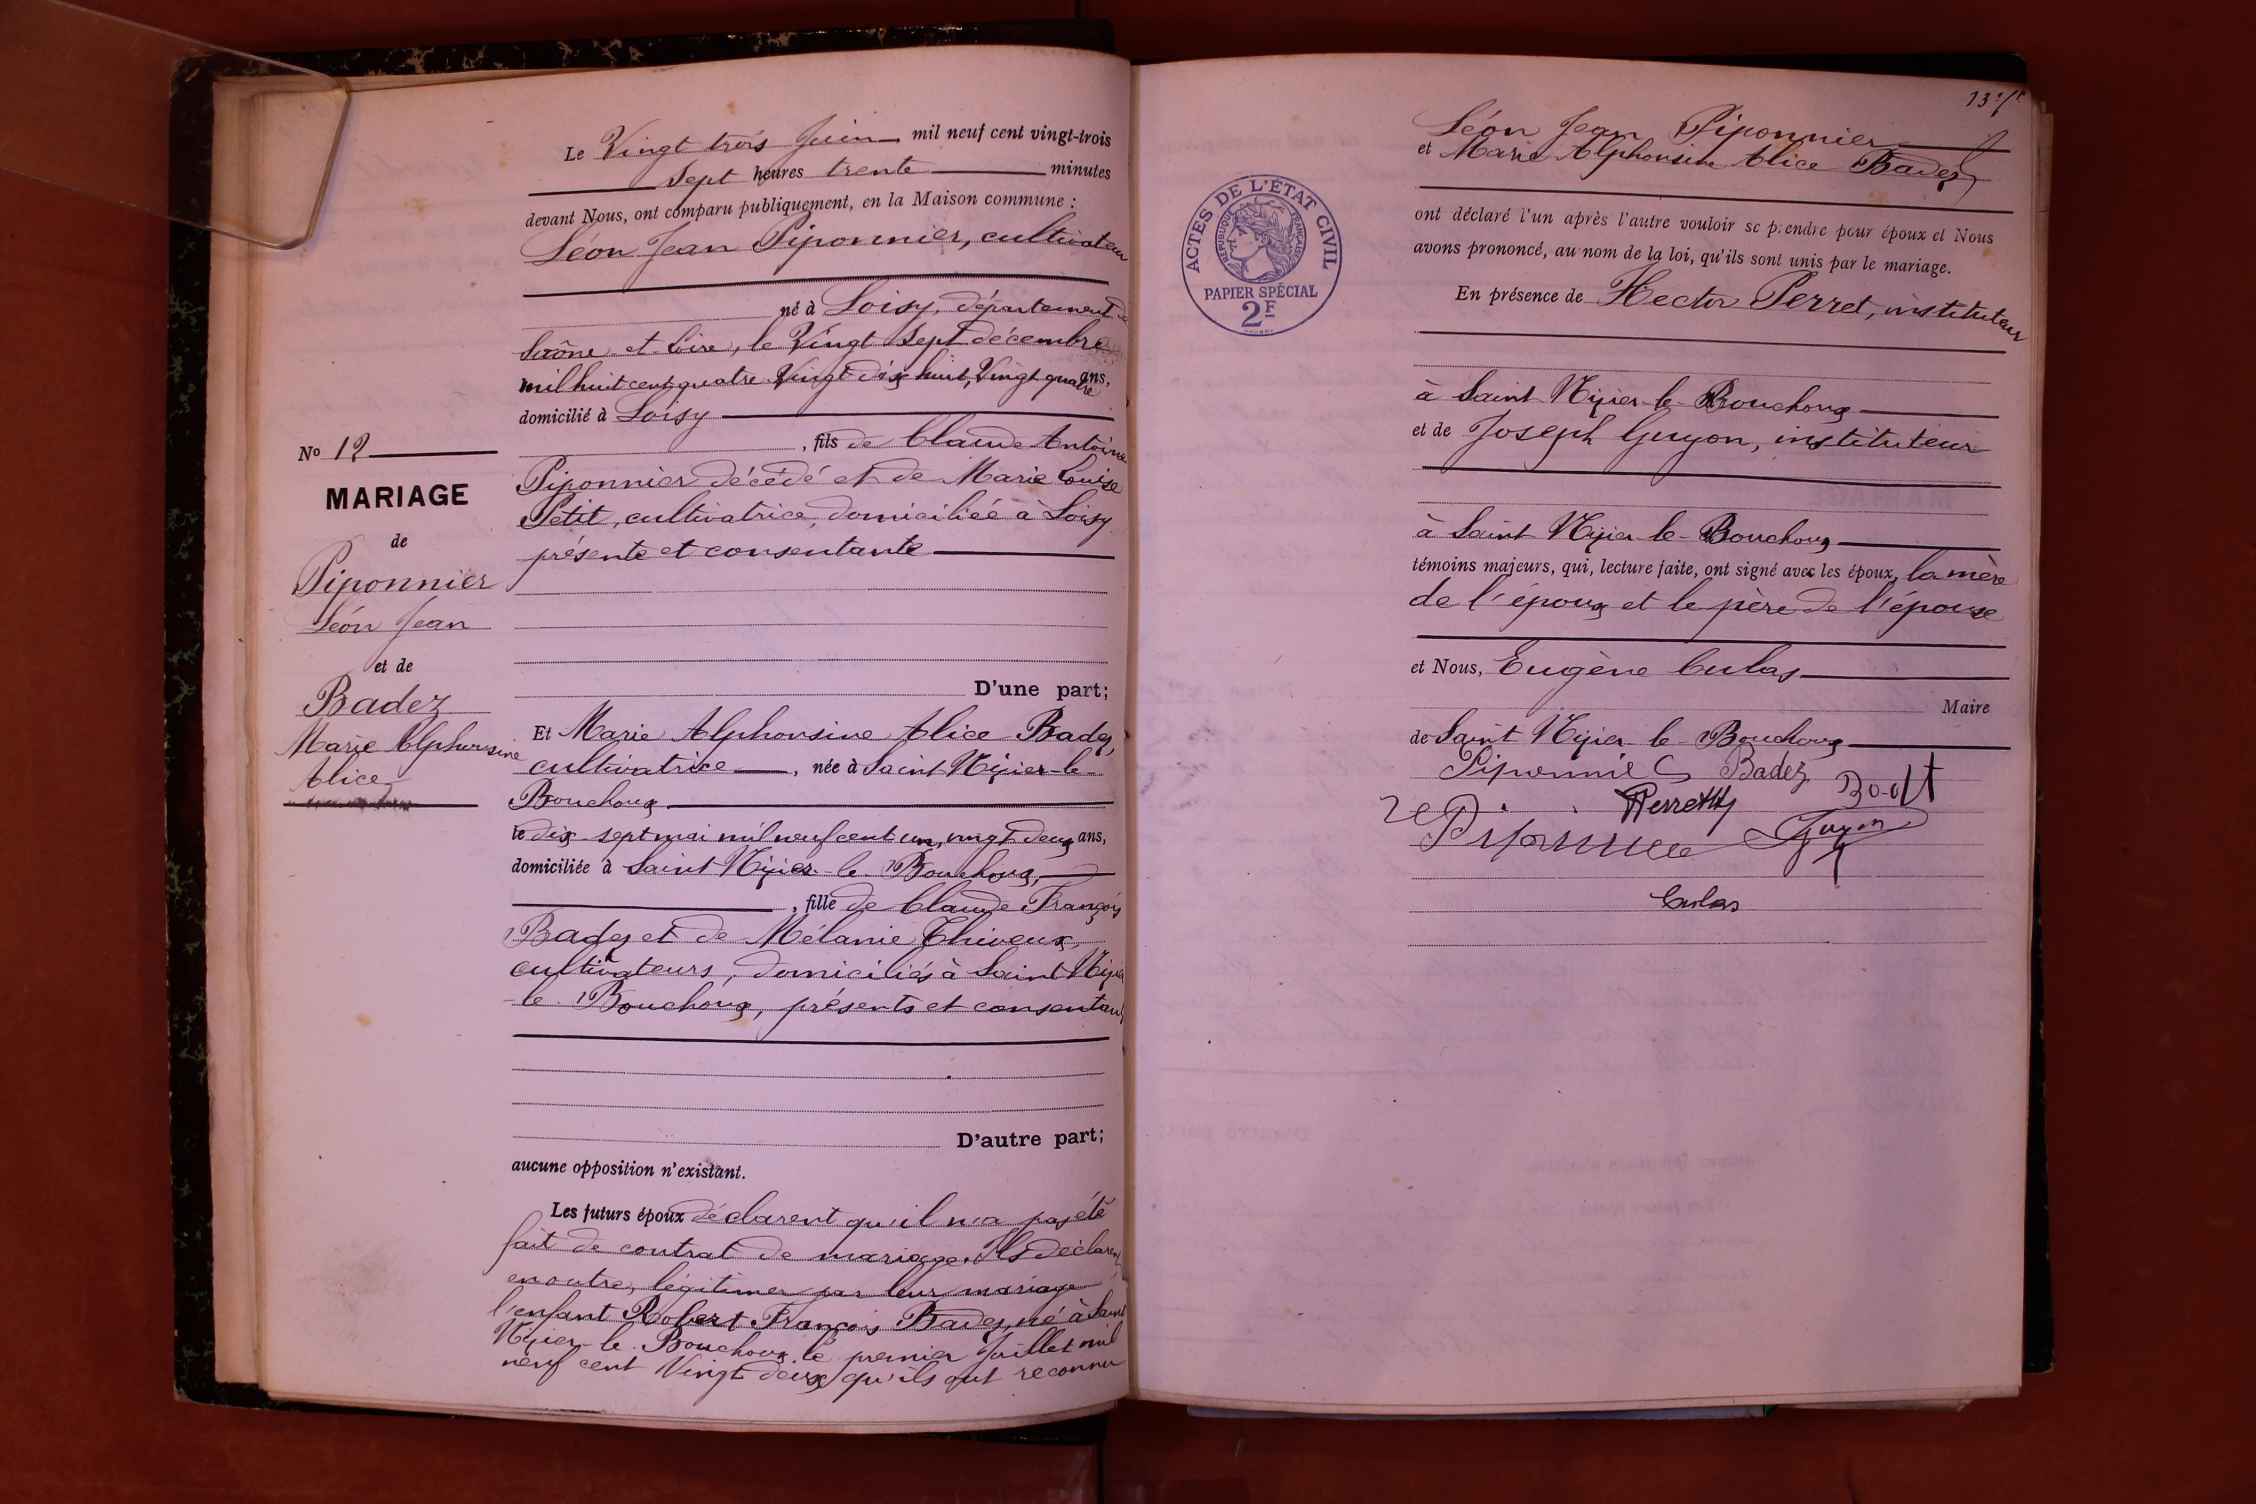 No 12
MARIAGE
de
Piponnier
Léon Jean
et de
Badez
Marie Alphonsine
Alice
Le Vingt trois Juin mil neuf cent vingt-trois
sept heures trente minutes
devant Nous, ont comparu publiquement, en la Maison commune :
Léon Jean Piponnier, cultivateur
né à Loisy, département de
Saône-et-Loire, le Vingt sept décembre
mil huit cent quatre Vingt dix huit, Vingt quatre ans,
domicilié à Loisy
, fils de Claude Antoine
Piponnier décédé et de Marie Louise
Petit, cultivatrice, domiciliée à Loisy
présente et consentante
D'une part;
Et Marie Alphonsine Alice Badez,
cultivatrice, née à Saint Nizier-le-
Bouchoux
le dix sept mai mil neuf cent un, vingt deux ans,
domiciliée à Saint Nizier-le-Bouchoux,
, fille de Claude François
Badez et de Mélanie Thiveux,
cultivateurs, domiciliés à Saint Nizier
-le-Bouchoux, présents et consentant
D'autre part;
aucune opposition n'existant.
Les futurs époux déclarent qu'il n'a pas été
fait de contrat de mariage. Ils déclarent
en outre, légitimer par leur mariage
l'enfant Robert François Badez, né à Saint
Nizier-le-Bouchoux le premier Juillet mil
neuf cent Vingt deux qu'ils ont reconnu
ACTES DE L'ÉTAT CIVIL
RÉPUBLIQUE FRANÇAISE
PAPIER SPÉCIAL
2F
Léon Jean Piponnier
et Marie Alphonsine Alice Badez
ont déclaré l'un après l'autre vouloir se prendre pour époux et Nous
avons prononcé, au nom de la loi, qu'ils sont unis par le mariage.
En présence de Hector Perret, instituteur
à Saint Nizier-le-Bouchoux
et de Joseph Guyon, instituteur
à Saint Nizier-le-Bouchoux
témoins majeurs, qui, lecture faite, ont signé avec les époux, la mère
de l'époux et le père de l'épouse
et Nous, Eugène Culas
Maire
de Saint Nizier-le-Bouchoux
Piponnie Badez
Perret
Piponnier Guyon
Culas